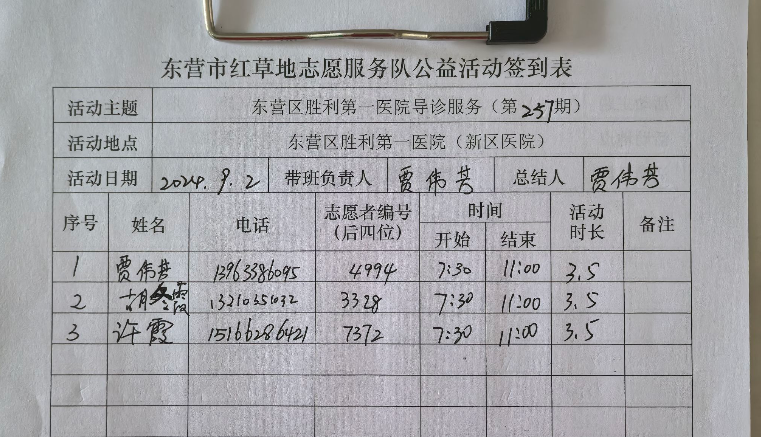 东营市红草地志愿服务队公益活动签到表
活动主题 东营区胜利第一医院导诊服务（第257期）
活动地点 东营区胜利第一医院（新区医院）
活动日期 2024.9.2 带班负责人 贾伟芸 总结人 贾伟芸
序号 姓名 电话 志愿者编号（后四位） 时间 开始 结束 活动时长 备注
1 贾伟芸 13963386095 4994 7:30 11:00 3.5
2 胡冬霞 3328 7:30 11:00 3.5
3 许霞 15166286421 7372 7:30 11:00 3.5